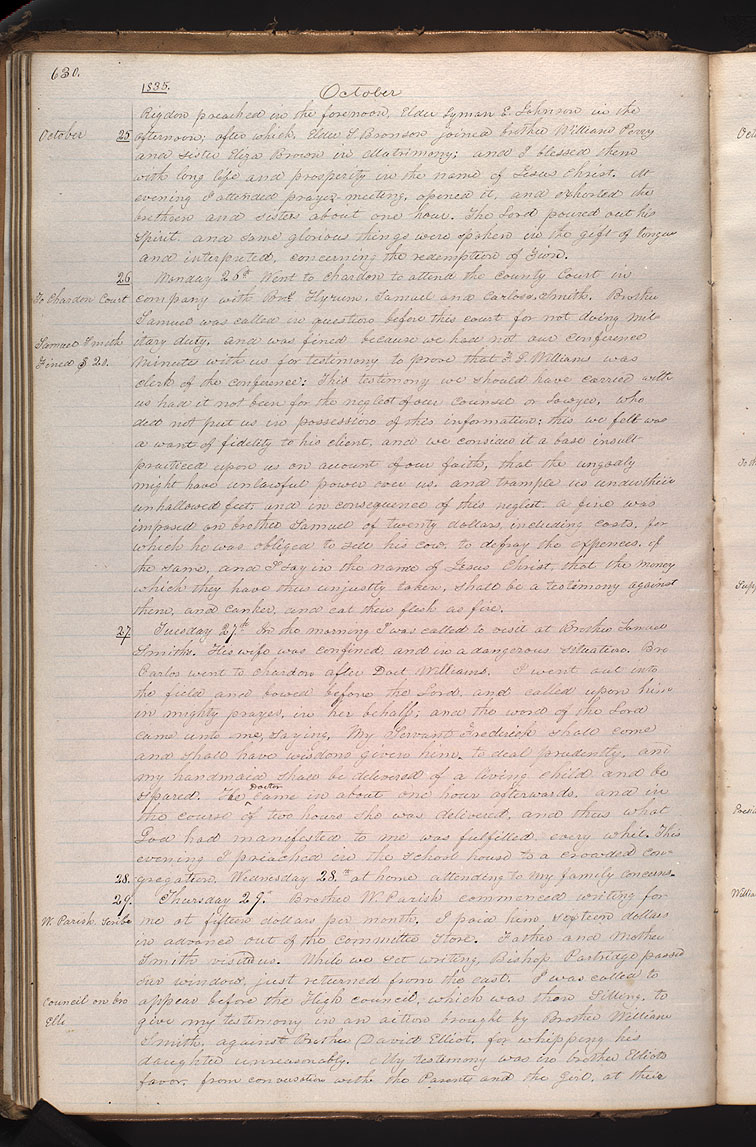 630.
1835.
October
Rigdon preached in the forenoon, Elder Lyman E. Johnson in the
October 25 afternoon; after which, Elder S. Bronson joined brother William Perry
and sister Eliza Brown in Matrimony; and I blessed them
with long life and prosperity in the name of Jesus Christ. At
evening I attended prayer meeting, opened it, and exhorted the
brethren and sisters about one hour. The Lord poured out his
Spirit, and some glorious things were spoken in the gift of tongues
and interpreted, concerning the redemption of Zion.
26 Monday 26th Went to Chardon to attend the County Court in
To Chardon Court company with Brn Hyrum, Samuel and Carloss Smith. Brother
Samuel was called in question before this court for not doing mil-
Samuel Smith itary duty, and was fined because we had not our conference
Fined $20. minutes with us for testimony to prove that F. G. Williams was
clerk of the conference: This testimony we should have carried with
us had it not been for the neglect of our Counsel or Lawyer, who
did not put us in possession of this information: this we felt was
a want of fidelity to his client, and we consider it a base insult
practiced upon us on account of our faith, that the ungodly
might have unlawful power over us, and trample us under their
unhallowed feet. and in consequence of this neglect, a fine was
imposed on brother Samuel of twenty dollars, including costs, for
which he was obliged to sell his cow, to defray the expences of
the same, and I say in the name of Jesus Christ, that the money
which they have thus unjustly taken, shall be a testimony against
them, and canker, and eat their flesh as fire.
27 Tuesday 27th In the morning I was called to visit at Brother Samuel
Smith's. His wife was confined and in a dangerous situation. Bro
Carlos went to Chardon after Doct Williams. I went out into
the field and bowed before the Lord, and called upon him
in mighty prayer, in her behalf; and the word of the Lord
came unto me, saying, My Servant Frederick shall come
and shall have wisdom given him, to deal prudently, and
my handmaid shall be delivered of a living child and be
Spared. The Doctor came in about one hour afterwards, and in
the course of two hours she was delivered, and thus what
God had manifested to me was fulfilled every whit. This
evening I preached in the school house to a crowded con-
28. gregation. Wednesday 28th at home attending to my family concerns.
29. Thursday 29th Brother W. Parish commenced writing for
W. Parish Scribe me at fifteen dollars per month. I paid him sixteen dollars
in advance out of the Committee Store. Father and Mother
Smith visited us. While we set writing, Bishop Partridge passed
our window, just returned from the east. I was called to
Council on bro appear before the High council, which was then Sitting, to
Elli give my testimony in an action brought by Brother William
Smith, against Brother David Elliot, for whipping his
daughter unreasonably. My testimony was in brother Elliots
favor, from conversation with the Parents and the Girl, at their